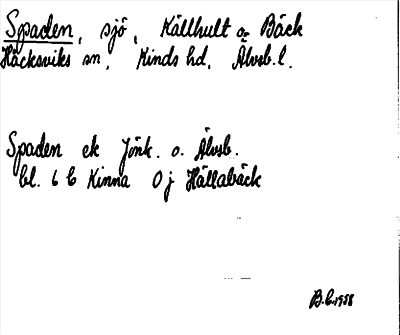 Spaden, sjö, Källhult o Bäck
Häcksviks sn, Kinds hd, Älvsb. l.
Spaden ek Jönk. o. Älvsb.
bl. 6 C Kinna 0 j Hällabäck
B.C. 1958